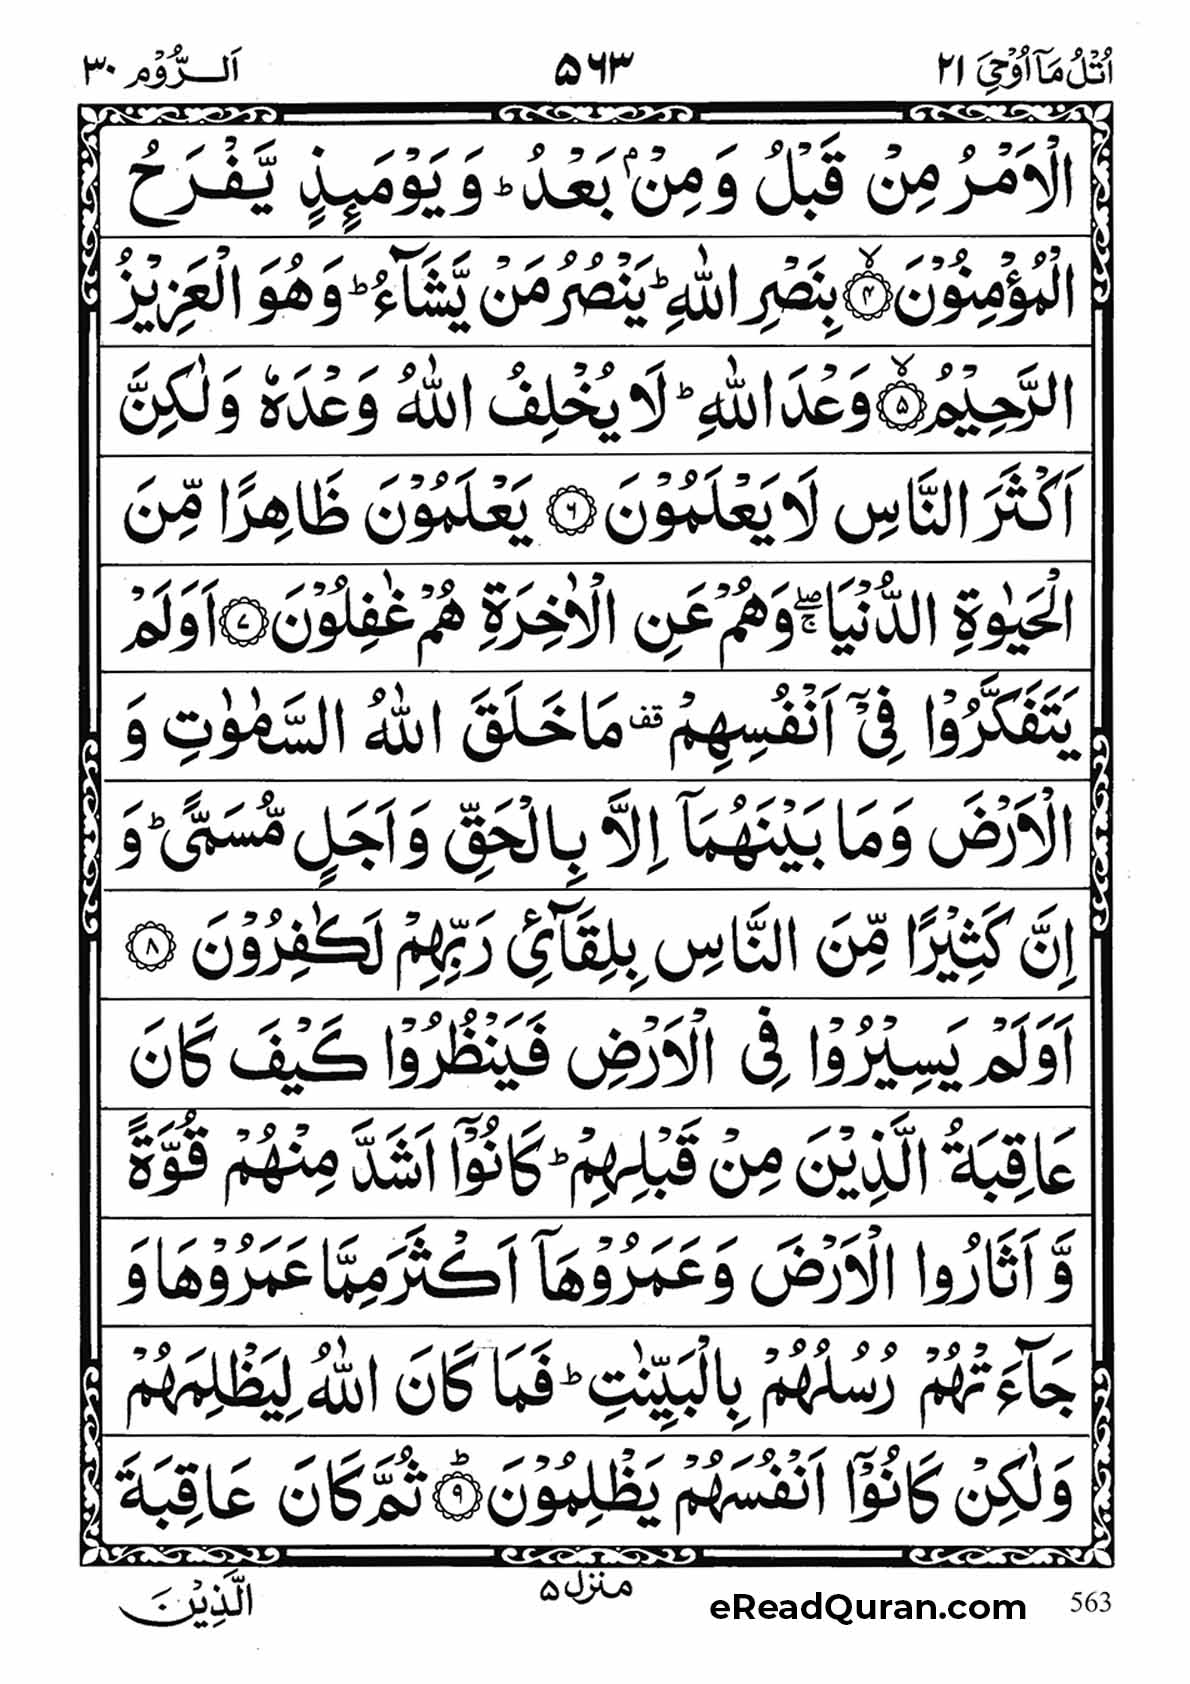 اُتْلُ مَاۤ اُوْحِیَ ۲۱
۵۶۳
اَلرُّوْم ۳۰
الْاَمْرُ مِنْ قَبْلُ وَ مِنْۢ بَعْدُ ؕ وَ یَوْمَىِٕذٍ یَّفْرَحُ
الْمُؤْمِنُوْنَ ۙ۴ بِنَصْرِ اللّٰهِ ؕ یَنْصُرُ مَنْ یَّشَآءُ ؕ وَ هُوَ الْعَزِیْزُ
الرَّحِیْمُ ۙ۵ وَعْدَ اللّٰهِ ؕ لَا یُخْلِفُ اللّٰهُ وَعْدَهٗ وَ لٰكِنَّ
اَكْثَرَ النَّاسِ لَا یَعْلَمُوْنَ ۶ یَعْلَمُوْنَ ظَاهِرًا مِّنَ
الْحَیٰوةِ الدُّنْیَا ۖۚ وَ هُمْ عَنِ الْاٰخِرَةِ هُمْ غٰفِلُوْنَ ۷ اَوَلَمْ
یَتَفَكَّرُوْا فِیْۤ اَنْفُسِهِمْ قف مَا خَلَقَ اللّٰهُ السَّمٰوٰتِ وَ
الْاَرْضَ وَ مَا بَیْنَهُمَاۤ اِلَّا بِالْحَقِّ وَ اَجَلٍ مُّسَمًّی ؕ وَ
اِنَّ كَثِیْرًا مِّنَ النَّاسِ بِلِقَآئِ رَبِّهِمْ لَكٰفِرُوْنَ ۸
اَوَلَمْ یَسِیْرُوْا فِی الْاَرْضِ فَیَنْظُرُوْا كَیْفَ كَانَ
عَاقِبَةُ الَّذِیْنَ مِنْ قَبْلِهِمْ ؕ كَانُوْۤا اَشَدَّ مِنْهُمْ قُوَّةً
وَّ اَثَارُوا الْاَرْضَ وَ عَمَرُوْهَاۤ اَكْثَرَ مِمَّا عَمَرُوْهَا وَ
جَآءَتْهُمْ رُسُلُهُمْ بِالْبَیِّنٰتِ ؕ فَمَا كَانَ اللّٰهُ لِیَظْلِمَهُمْ
وَ لٰكِنْ كَانُوْۤا اَنْفُسَهُمْ یَظْلِمُوْنَ ؕ۹ ثُمَّ كَانَ عَاقِبَةَ
منزل ۵
الَّذِیْنَ
eReadQuran.com
563